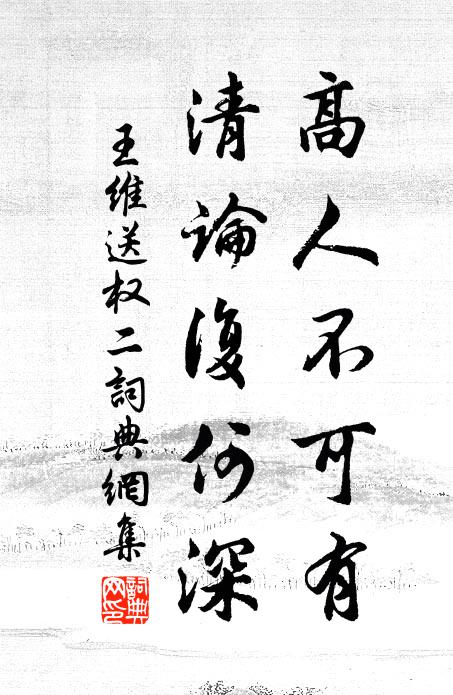 高人不可有
清論復何深
王維送权二詞典網集
詞典网印